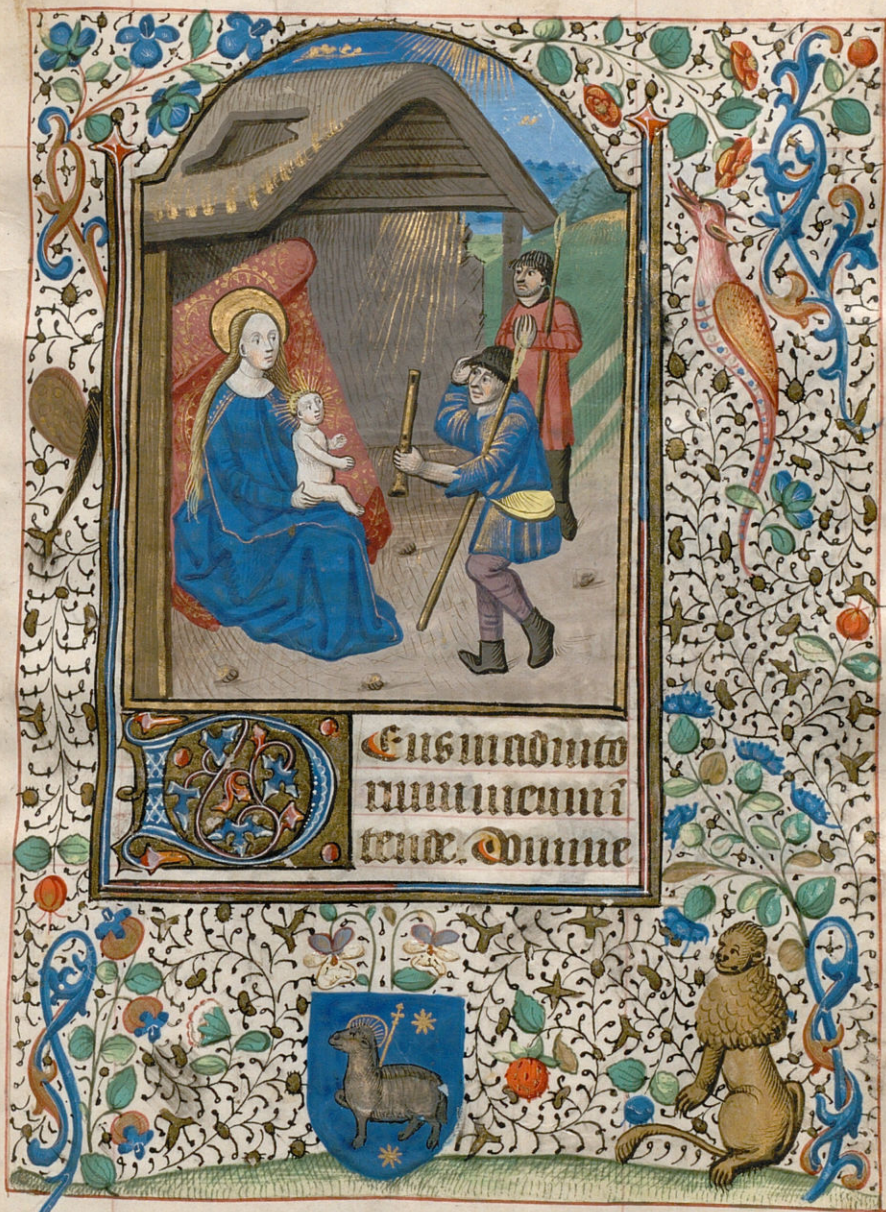 Deus in adiuto
rium meum in
tende. Domine